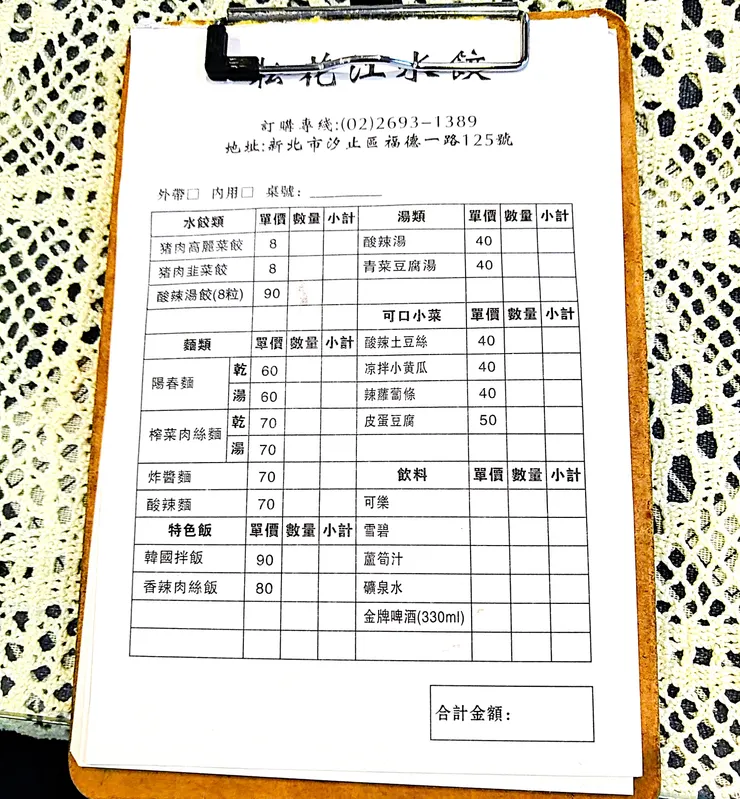 松花江水餃
訂購專綫:(02)2693-1389
地址:新北市汐止區福德一路125號
外帶□ 內用□ 桌號:
水餃類 單價 數量 小計 湯類 單價 數量 小計
豬肉高麗菜餃 8 酸辣湯 40
豬肉韭菜餃 8 青菜豆腐湯 40
酸辣湯餃(8粒) 90
可口小菜 單價 數量 小計
麵類 單價 數量 小計 酸辣土豆絲 40
陽春麵 乾 60 涼拌小黃瓜 40
湯 60 辣蘿蔔條 40
榨菜肉絲麵 乾 70 皮蛋豆腐 50
湯 70
炸醬麵 70 飲料 單價 數量 小計
酸辣麵 70 可樂
特色飯 單價 數量 小計 雪碧
韓國拌飯 90 蘆筍汁
香辣肉絲飯 80 礦泉水
金牌啤酒(330ml)
合計金額: